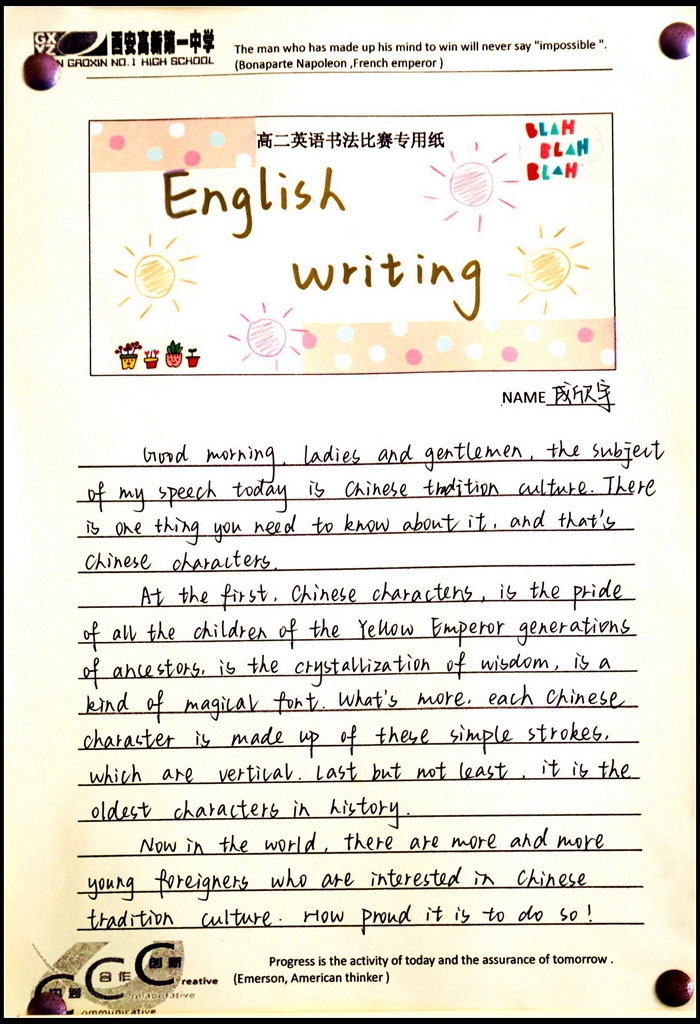 GX
YZ
西安高新第一中学
N GAOXIN NO.1 HIGH SCHOOL
The man who has made up his mind to win will never say "impossible ".
(Bonaparte Napoleon ,French emperor )
高二英语书法比赛专用纸
BLAH
BLAH
BLAH
English
writing
NAME
Good morning, ladies and gentlemen, the subject
of my speech today is Chinese tradition culture. There
is one thing you need to know about it, and that's
Chinese characters.
At the first, Chinese characters, is the pride
of all the children of the Yellow Emperor generations
of ancestors, is the crystallization of wisdom, is a
kind of magical font. What's more, each Chinese
character is made up of these simple strokes,
which are vertical. Last but not least, it is the
oldest characters in history.
Now in the world, there are more and more
young foreigners who are interested in Chinese
tradition culture. How proud it is to do so!
Progress is the activity of today and the assurance of tomorrow .
(Emerson, American thinker )
合作
创新
reative
ollaborative
ommunicative